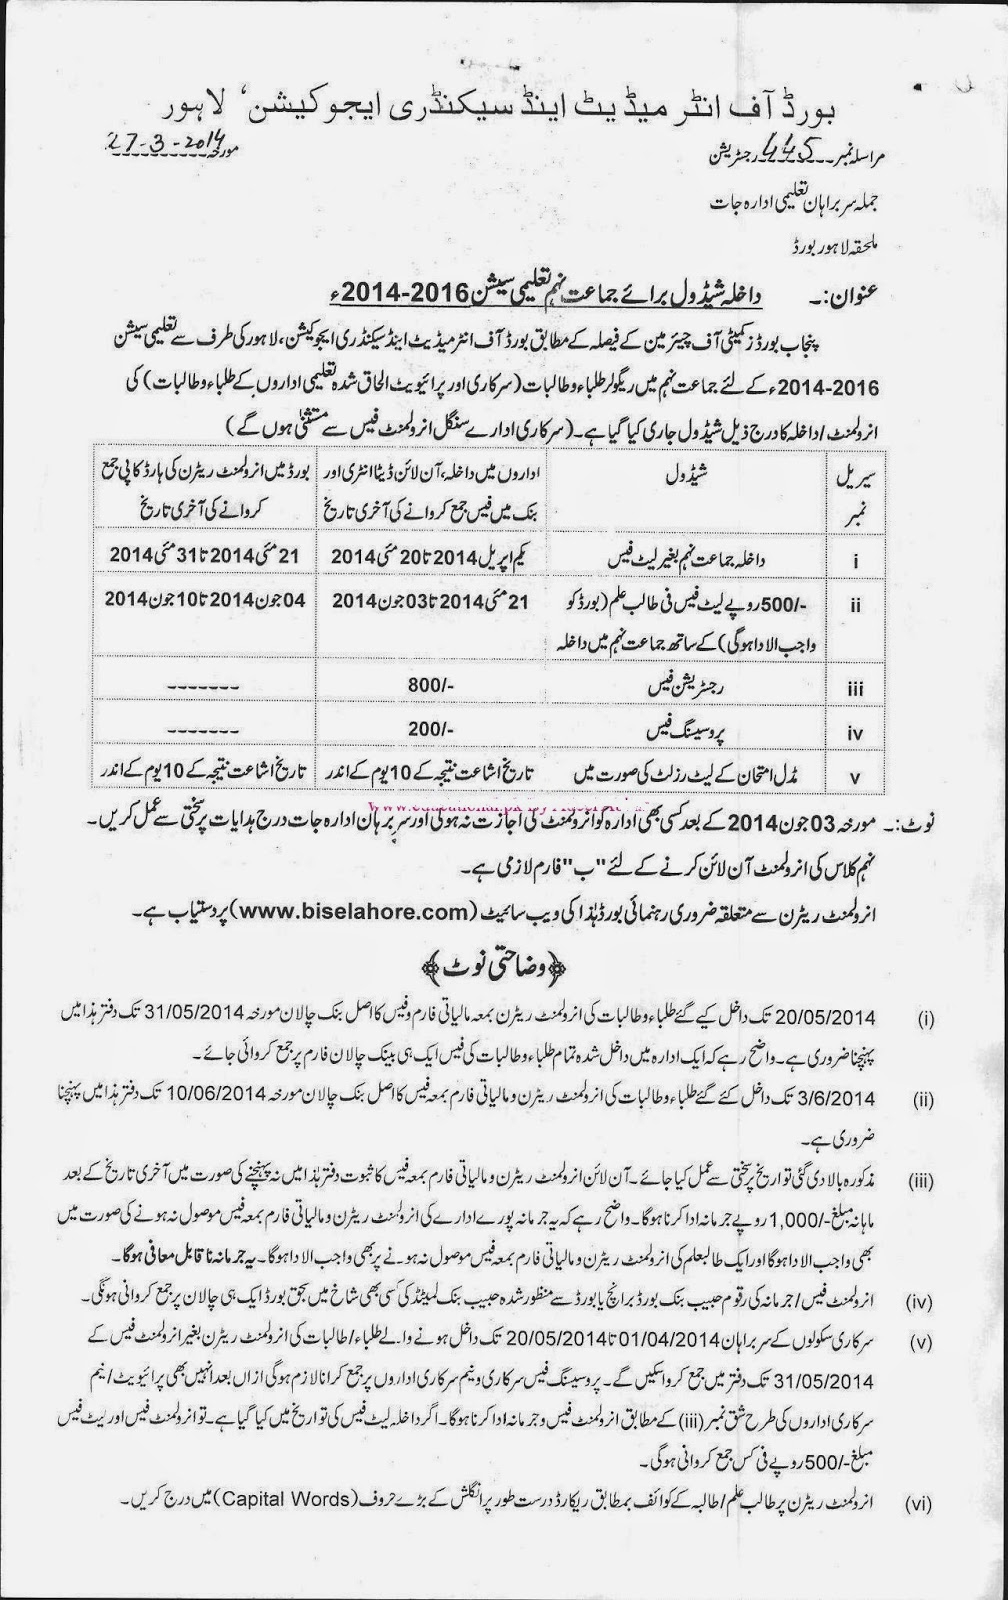 بورڈ آف انٹر میڈیٹ اینڈ سیکنڈری ایجوکیشن، لاہور
مراسلہ نمبر 445 رجٹریشن مورخہ 27-3-2014
جملہ سربراہان تعلیمی ادارہ جات
ملحقہ لاہور بورڈ
عنوان:۔ داخلہ شیڈول برائے جماعت نہم تعلیمی سیشن 2016-2014ء
پنجاب بورڈز کمیٹی آف چیئرمین کے فیصلہ کے مطابق بورڈ آف انٹرمیڈیٹ اینڈ سیکنڈری ایجوکیشن، لاہور کی طرف سے تعلیمی سیشن
2014-2016ء کے لئے جماعت نہم میں ریگولر طلباء و طالبات (سرکاری اور پرائیویٹ الحاق شدہ تعلیمی اداروں کے طلباء و طالبات) کی
انرولمنٹ / داخلہ کا درج ذیل شیڈول جاری کیا گیا ہے۔ (سرکاری ادارے سنگل انرولمنٹ فیس سے مستثنیٰ ہوں گے)
سیریل شیڈول اداروں میں داخلہ، آن لائن ڈیٹا انٹری اور بورڈ میں انرولمنٹ ریٹرن کی ہارڈ کاپی جمع
نمبر بنک میں فیس جمع کروانے کی آخری تاریخ کروانے کی آخری تاریخ
i داخلہ جماعت نہم بغیر لیٹ فیس یکم اپریل 2014 تا 20 مئی 2014 21 مئی 2014 تا 31 مئی 2014
ii 500/- روپے لیٹ فیس فی طالب علم (بورڈ کو 21 مئی 2014 تا 03 جون 2014 04 جون 2014 تا 10 جون 2014
واجب الادا ہوگی) کے ساتھ جماعت نہم میں داخلہ
iii رجٹریشن فیس 800/- -------
iv پروسیسنگ فیس 200/- -------
v مڈل امتحان کے لیٹ رزلٹ کی صورت میں تاریخ اشاعت نتیجہ کے 10 یوم کے اندر تاریخ اشاعت نتیجہ کے 10 یوم کے اندر
نوٹ:۔ مورخہ 03 جون 2014 کے بعد کسی بھی ادارہ کو انرولمنٹ کی اجازت نہ ہوگی اور سربرہان ادارہ جات درج ہدایات پر سختی سے عمل کریں۔
نہم کلاس کی انرولمنٹ آن لائن کرنے کے لئے "ب" فارم لازمی ہے۔
انرولمنٹ ریٹرن سے متعلقہ ضروری رہنمائی بورڈ ہٰذا کی ویب سائیٹ (www.biselahore.com) پر دستیاب ہے۔
﴿وضاحتی نوٹ﴾
(i) 20/05/2014 تک داخل کیے گئے طلباء و طالبات کی انرولمنٹ ریٹرن بمعہ مالیاتی فارم و فیس کا اصل بنک چالان مورخہ 31/05/2014 تک دفتر ہذا میں
پہنچنا ضروری ہے۔ واضح رہے کہ ایک ادارہ میں داخل شدہ تمام طلباء و طالبات کی فیس ایک ہی بینک چالان فارم پر جمع کروائی جائے۔
(ii) 3/6/2014 تک داخل کئے گئے طلباء و طالبات کی انرولمنٹ ریٹرن و مالیاتی فارم بمعہ فیس کا اصل بنک چالان مورخہ 10/06/2014 تک دفتر ہذا میں پہنچنا
ضروری ہے۔
(iii) مذکورہ بالا دی گئی تواریخ پر سختی سے عمل کیا جائے۔ آن لائن انرولمنٹ ریٹرن و مالیاتی فارم بمعہ فیس کا ثبوت دفتر ہٰذا میں نہ پہنچنے کی صورت میں آخری تاریخ کے بعد
ماہانہ مبلغ -/1,000 روپے جرمانہ ادا کرنا ہوگا۔ واضح رہے کہ یہ جرمانہ پورے ادارے کی انرولمنٹ ریٹرن و مالیاتی فارم بمعہ فیس موصول نہ ہونے کی صورت میں
بھی واجب الادا ہوگا اور ایک طالبعلم کی انرولمنٹ ریٹرن و مالیاتی فارم بمعہ فیس موصول نہ ہونے پر بھی واجب الادا ہوگا۔ یہ جرمانہ ناقابل معافی ہوگا۔
(iv) انرولمنٹ فیس / جرمانہ کی رقوم حبیب بنک بورڈ برانچ یا بورڈ سے منظور شدہ حبیب بنک لمیٹڈ کی کسی بھی شاخ میں بحق بورڈ ایک ہی چالان پر جمع کروانی ہونگی۔
(v) سرکاری سکولوں کے سربراہان 01/04/2014 تا 20/05/2014 تک داخل ہونے والے طلباء / طالبات کی انرولمنٹ ریٹرن بغیر انرولمنٹ فیس کے
31/05/2014 تک دفتر میں جمع کرواسکیں گے۔ پروسیسنگ فیس سرکاری و نیم سرکاری اداروں پر جمع کرانا لازم ہوگی ازاں بعد انہیں بھی پرائیویٹ / نیم
سرکاری اداروں کی طرح شق نمبر (iii) کے مطابق انرولمنٹ فیس و جرمانہ ادا کرنا ہوگا۔ اگر داخلہ لیٹ فیس کی تواریخ میں کیا گیا ہے۔ تو انرولمنٹ فیس اور لیٹ فیس
مبلغ -/500 روپے فی کس جمع کروانی ہوگی۔
(vi) انرولمنٹ ریٹرن پر طالب علم / طالبہ کے کوائف بمطابق ریکارڈ درست طور پر انگلش کے بڑے حروف (Capital Words) میں درج کریں۔